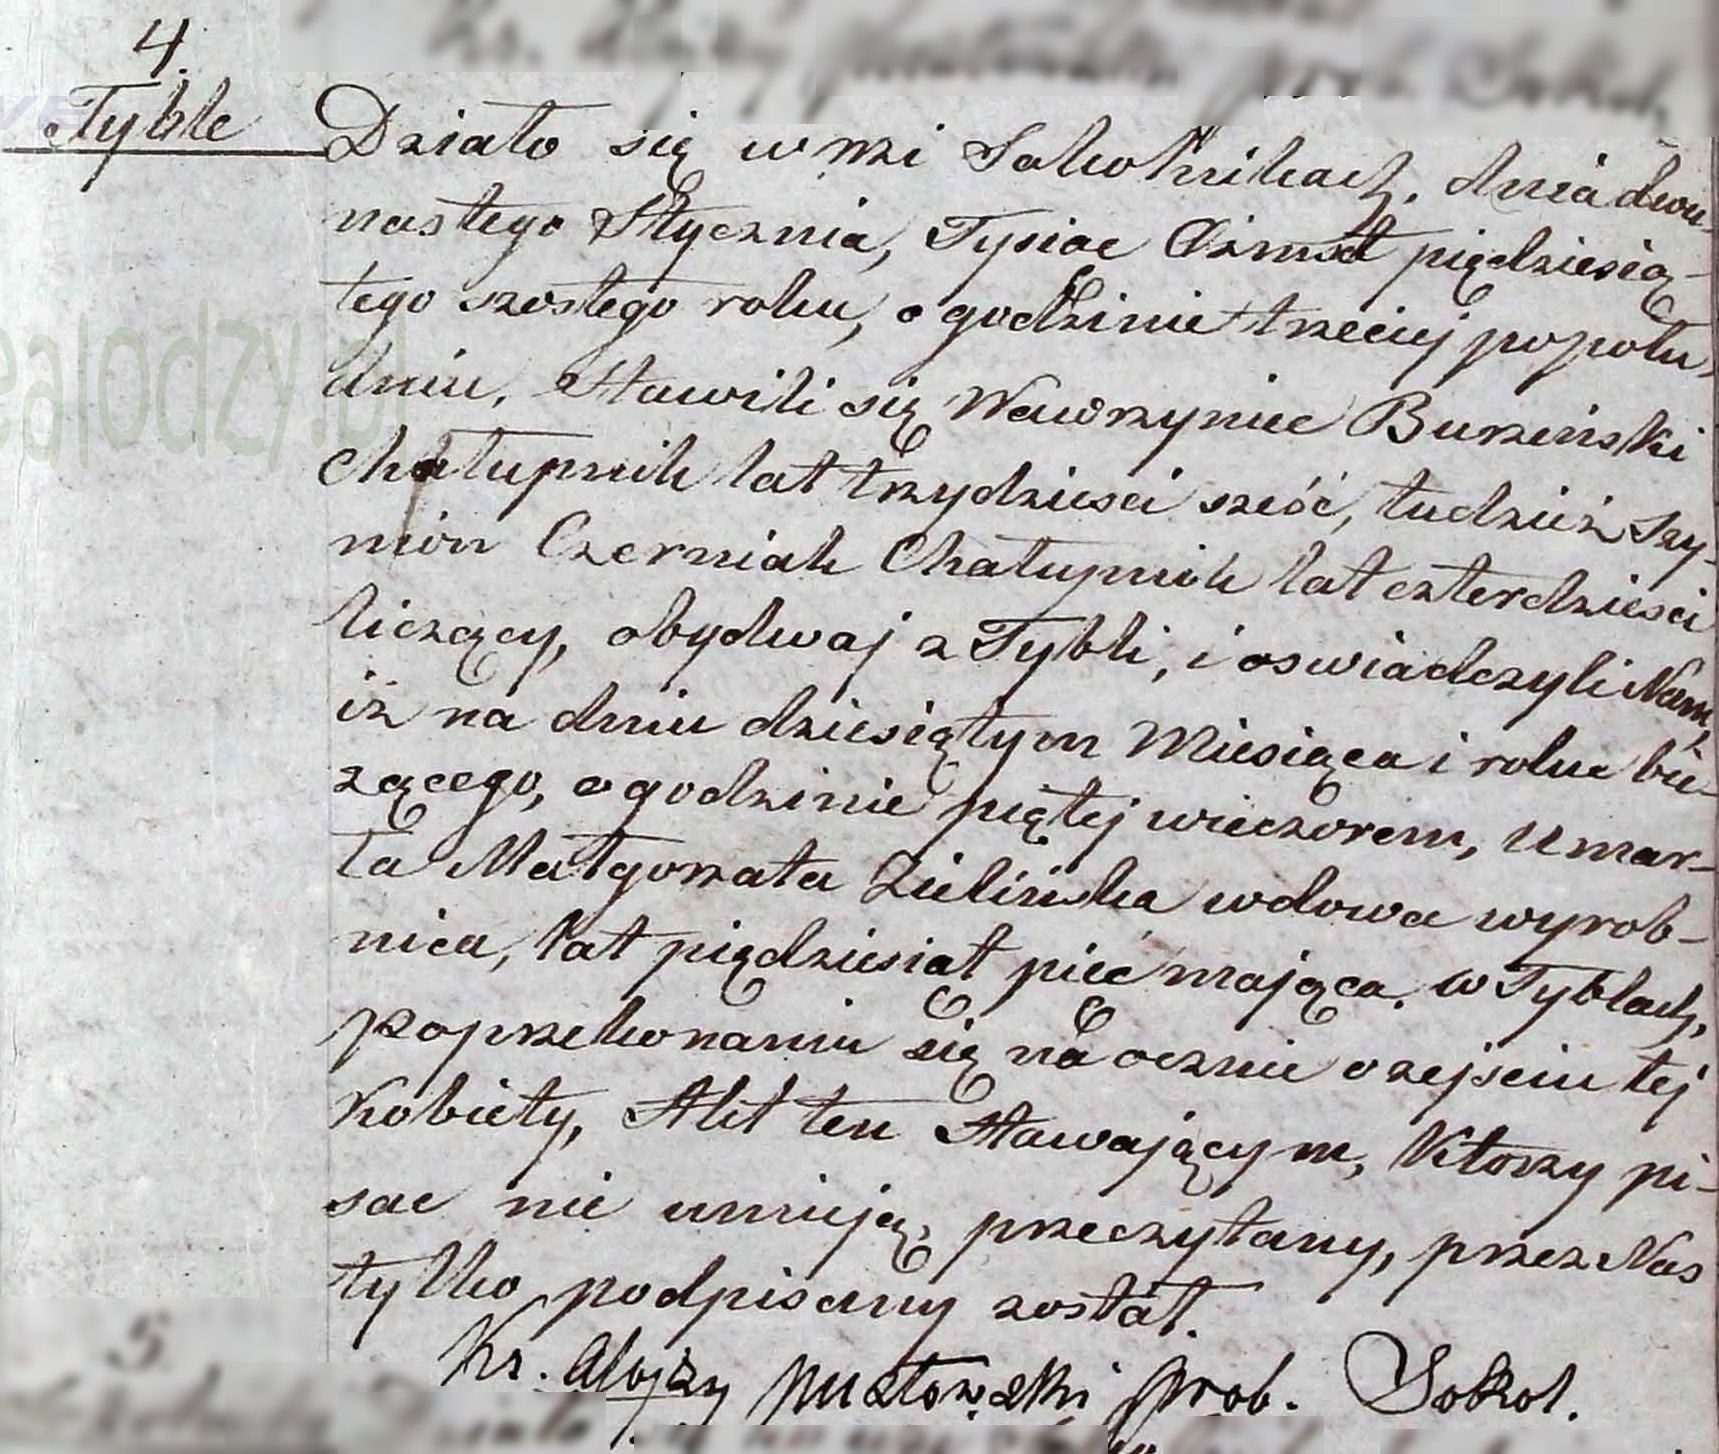 4.
Tyble
Działo się w wsi Sokolnikach, dnia dwu-
nastego Stycznia, Tysiac Ośmset pięćdziesią-
tego szostego roku, o godzinie trzeciej popołu-
dniu, Stawili się Wawrzyniec Burzinski
Chałupnik lat trzydziesci sześć, tudzież Szy-
mon Czerniak Chałupnik lat czterdziesci
liczący, obydwaj z Tybli, i oswiadczyli Nam,
iż na dniu dziesiątym Miesiąca i roku bie-
zącego, o godzinie piątej wieczorem, umar-
ła Małgorzata Zielińska wdowa wyrob-
nica, lat piędziesiat pięć mająca. w Tyblach,
po przekonaniu się na ocznie o zejsciu tej
Kobiety, Akt ten Stawającym, Ktorzy pi-
sac nie umieją, przeczytany, przez Nas
tylko podpisany został.
Ks. Alojzy prob. Sokol.
5
ealodzy.pl